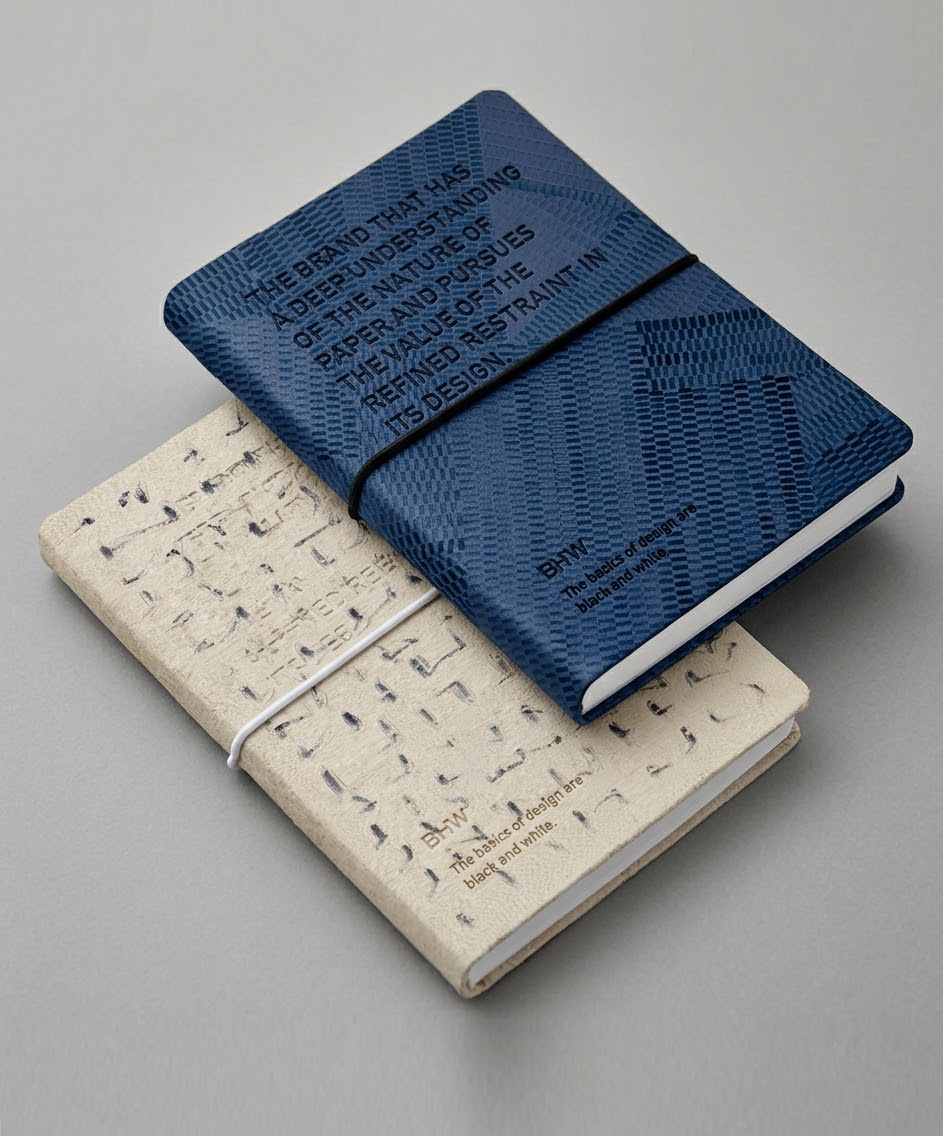 THE BRAND THAT HAS
A DEEP UNDERSTANDING
OF THE NATURE OF
PAPER AND PURSUES
THE VALUE OF THE
REFINED RESTRAINT IN
ITS DESIGN.
BHW
The basics of design are
black and white.
REFINED RES
BHW
The basics of design are
black and white.